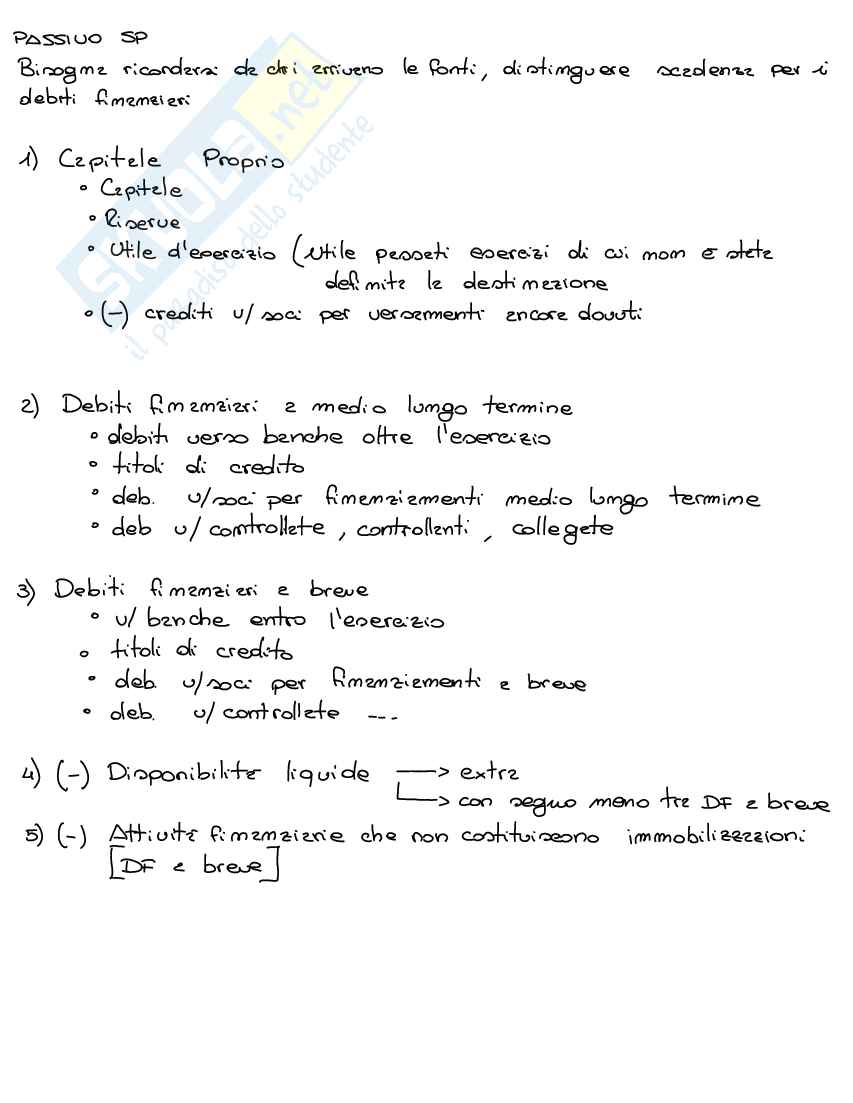 PASSIVO SP
Bisogna ricordarsi da chi arrivano le fonti, distinguere scadenza per i
debiti finanzieri
1) Capitale Proprio
• Capitale
• Riserve
• Utile d'esercizio (Utile passati esercizi di cui non è stata
definita la destinazione
• (-) crediti v/ soci per versamenti ancora dovuti
2) Debiti finanziari a medio lungo termine
• debiti verso banche oltre l'esercizio
• titoli di credito
• deb. v/soci per finanziamenti medio lungo termine
• deb v/ controllate, controllanti, collegate
3) Debiti finanziari a breve
• v/ banche entro l'esercizio
• titoli di credito
• deb. v/soci per finanziamenti a breve
• deb. v/ controllate ---
4) (-) Disponibilità liquide → extra
→ con segno meno tra DF a breve
5) (-) Attività finanziarie che non costituiscono immobilizzazioni
[DF a breve]
SKUOLA.net
il paradiso dello studente